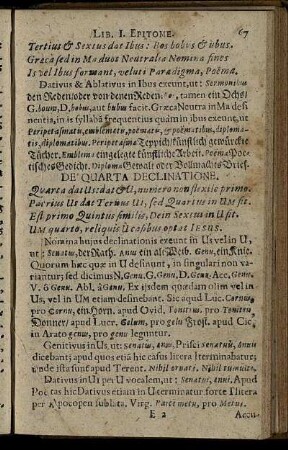 LIB. I. EPITOME. 67
Tertius & Sextus dat Ibus: Bos bobus & ubus.
Græca sed in Ma duos Neutralia Nomina fines
Is vel Ibus formant, veluti Paradigma, Poëma.
Dativus & Ablativus in Ibus exeunt, ut: Sermonibus
den Reden/oder von denen Reden. tamen ein Ochs/
G. boum, D. bobus, aut bubus facit. Græca Neutra in Ma de-
sinentia, in is syllabâ frequentius quàm in ibus exeunt, ut
Peripetasmatis, emblematis, poëmatis, & poëmatibus, diploma-
tis, diplomatibus. Peripetasma Teppich/künstlich gewürckte
Tücher. Emblema eingelegte künstliche Arbeit. Poëma Poe-
tisches Gedicht. Diploma Gewalt oder Vollmachts Brieff.
DE QUARTA DECLINATIONE.
Quarta dat Us: dat & U, numero non flexile primo.
Patrius Us dat Tertius UI, sed Quartus in UM sit.
Est primo Quintus similis, Dein Sextus in U sit.
UM quarto, reliquis U casibus optat IESUS.
Nomina hujus declinationis exeunt in Us vel in U,
ut: Senatus, der Rath. Anus ein alt Weib. Genu, ein Knie.
Quorum hæc quæ in U desinunt, in singulari non va-
riantur; sed dicimus N. Genu, G. Genu, D. Genu, Acc. Genu,
V. ô Genu, Abl. â Genu. Ex iisdem quædam olim vel in
Us, vel in UM etiam desinebant. Sic apud Luc. Cornus,
pro Cornu, ein Horn. apud Ovid. Tonitrus, pro Tonitru
Donner/ apud Lucr. Gelum, pro gelu Frost. apud Cic.
in Arato genus, pro genu leguntur.
Genitivus in Us, ut: Senatus, anus. Prisci senatuis, anuis
dicebant; apud quos etiā hic casus litera I terminabatur;
unde ista sunt apud Terent. Nihil ornati, Nihil tumulti.
Dativus in UI per U vocalem, ut: Senatui, anui. Apud
Poëtas hic Dativus etiam in U terminatur forte I litera
per Apocopen sublata. Virg. Parce metu, pro Metui.
E 2 Accu-